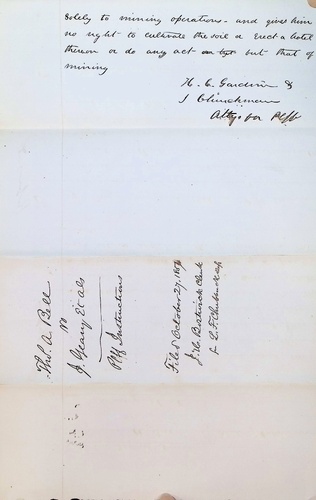 solely to mining operations - and gives him
no right to cultivate the soil or erect a hotel
thereon or do any act but that of
mining
H. C. Gardiner &
Attys for Plff
Thos. A. Bell
vs
J. Geary Et als
Plff Instructions
Filed October 27, 18
J. C. Bostwick Clerk